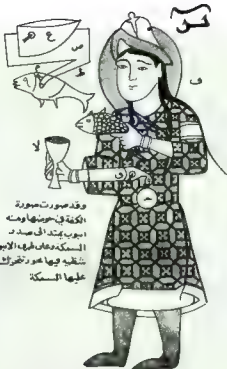 ع
ص
ط
ف
لا
وقد صورت صورة
الكفة في حوضها ومنه
انبوب يمتد الى صدر
السمكة وعلى طرف الانبو
شظيه فيها محور تتحرك
عليها السمكة